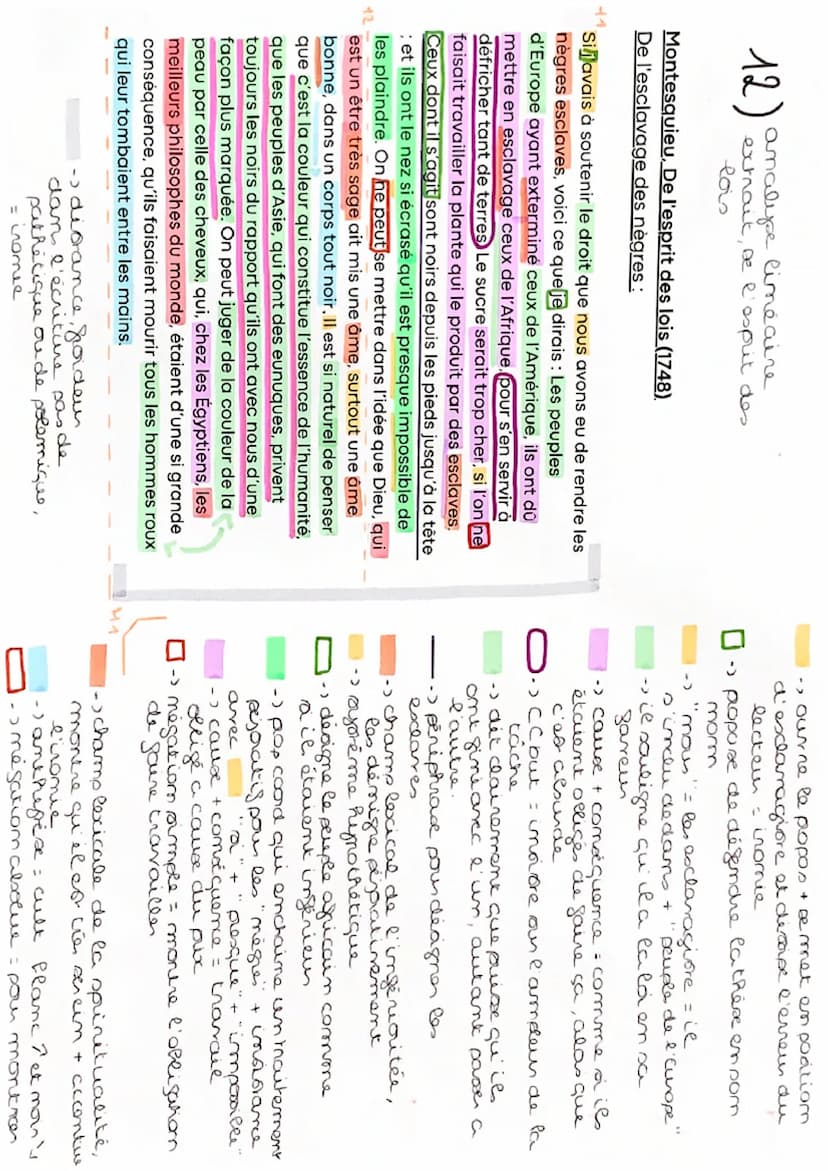 12) analyse linéaire
extrait, de l'esprit des
lois
Montesquieu, De l'esprit des lois (1748),
De l'esclavage des nègres :
11
Si j'avais à soutenir le droit que nous avons eu de rendre les
nègres esclaves, voici ce que je dirais : Les peuples
d'Europe ayant exterminé ceux de l'Amérique, ils ont dû
mettre en esclavage ceux de l'Afrique, pour s'en servir à
défricher tant de terres. Le sucre serait trop cher, si l'on ne
faisait travailler la plante qui le produit par des esclaves.
Ceux dont il s'agit sont noirs depuis les pieds jusqu'à la tête
; et ils ont le nez si écrasé qu'il est presque impossible de
les plaindre. On ne peut se mettre dans l'idée que Dieu, qui
12
est un être très sage ait mis une âme, surtout une âme
bonne, dans un corps tout noir. Il est si naturel de penser
que c'est la couleur qui constitue l'essence de l'humanité,
que les peuples d'Asie, qui font des eunuques, privent
toujours les noirs du rapport qu'ils ont avec nous d'une
façon plus marquée. On peut juger de la couleur de la
peau par celle des cheveux, qui, chez les Égyptiens, les
meilleurs philosophes du monde, étaient d'une si grande
conséquence, qu'ils faisaient mourir tous les hommes roux
qui leur tombaient entre les mains.
-> dans l'écriture pas de
pathétique ou de polémique,
= ironie
-> ouvre le propos + se met en position
d'esclavagiste et divise l'erreur du
lecteur = ironie
-> propose de défendre la thèse en son
nom
-> "nous" = les esclavagiste = il
s'inclu dedans + "peuple de l'europe"
-> il souligne qu'il a la loi en sa
faveur
-> cause + conséquence = comme si ils
étaient obligés de faire ça, alors que
c'est absurde
-> CC but = insiste sur l'ampleur de la
tâche
-> dit clairement que puisqu'ils
ont fini avec l'un, autant passer à
l'autre.
-> périphrase pour désigner les
esclaves
-> champ lexical de l'infériorité,
les dénigre péjorativement
-> système hypothétique
-> désigne le peuple africain comme
si il étaient inférieur
-> pas cond qui enchaine un traitement
péjoratif pour les "nègres" + insistance
avec "si" + "presque" + "impossible"
-> cause + conséquence = travail
obligé à cause du prix
-> négation simple = montre l'obligation
de faire travailler
-> champ lexicale de la spiritualité,
montre qu'il est très serein + accentue
l'ironie
-> antithèse = cult blanc ↗ et noir ↘
-> négation absolue = pour montrer